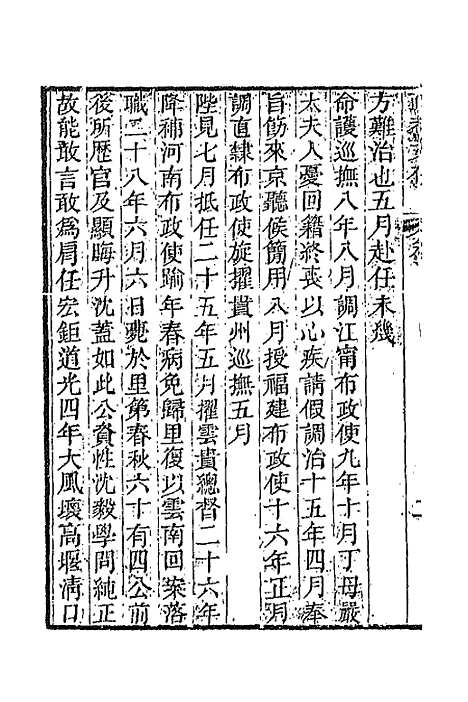 方難治也五月赴任未幾
命護巡撫八年八月調江甯布政使九年十月丁母嚴
太夫人憂回籍終喪以心疾請假調治十五年四月奉
旨飭來京聽候簡用八月授福建布政使十六年正月
調直隸布政使旋擢貴州巡撫五月
陛見七月抵任二十五年五月擢雲貴總督二十六年
降補河南布政使踰年春病免歸里復以雲南回案落
職二十八年六月六日薨於里第春秋六十有四公前
後所歷官及顯晦升沈蓋如此公資性沈毅學問純正
故能敢言敢爲肩任宏鉅道光四年大風壞高堰清口